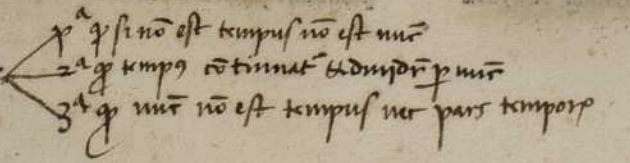 pª ꝙ si nō est tempus nō est nūc
2ª ꝙ tempꝰ cōtinuatʳ & diuidit̄ ꝑ nūc
3ª ꝙ nūc nō est tempus nec pars temporꝭ